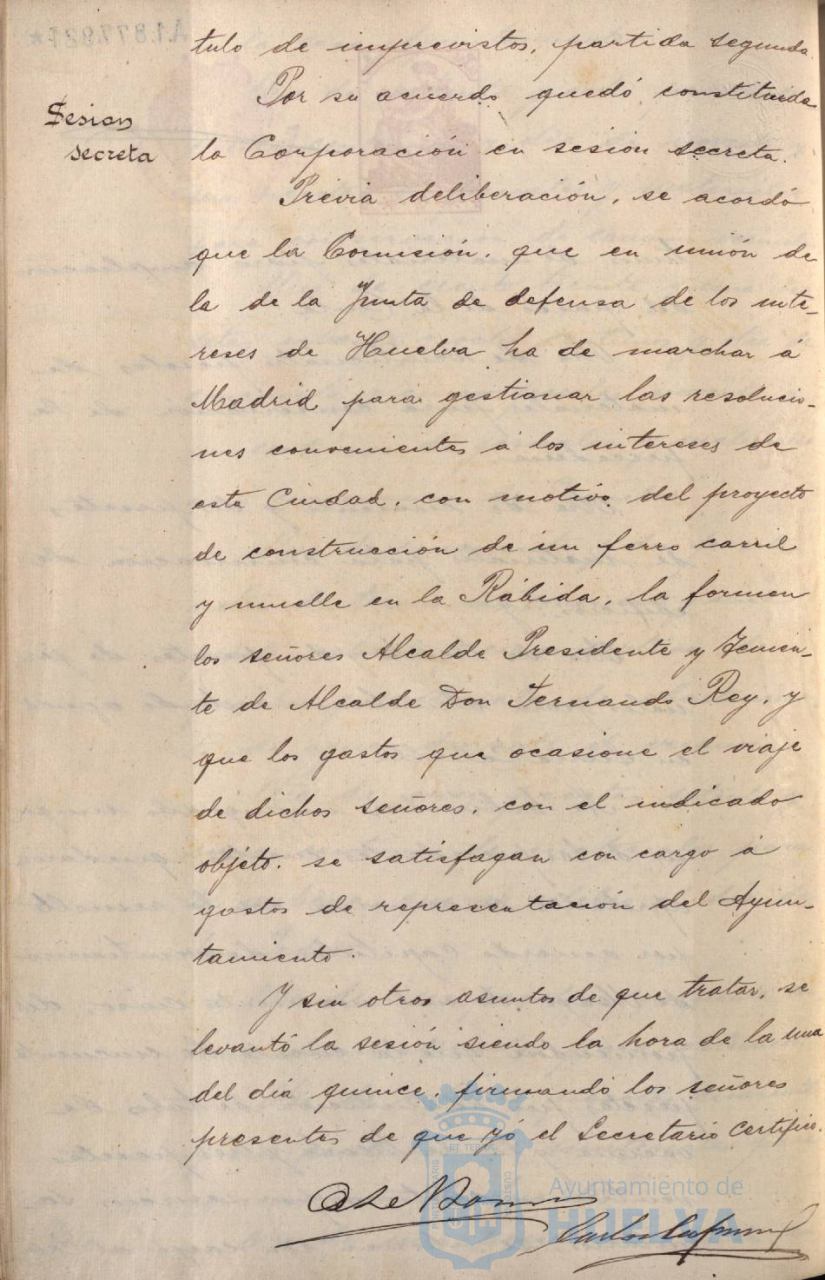 tulo de imprevistos, partida segunda.
Por su acuerdo quedó constituida
Sesion
secreta
la Corporación en sesion secreta.
Prévia deliberación, se acordó
que la Comisión, que en unión de
la de la Junta de defensa de los inte-
reses de Huelva ha de marchar á
Madrid para gestionar las resolucio-
nes convenientes á los intereses de
esta Ciudad, con motivo del proyecto
de construcción de un ferro carril
y muelle en la Rábida, la formen
los señores Alcalde Presidente y Tenien-
te de Alcalde Don Fernando Rey, y
que los gastos que ocasione el viaje
de dichos señores, con el indicado
objeto, se satisfagan con cargo á
gastos de representación del Ayun-
tamiento.
Y sin otros asuntos de que tratar, se
levantó la sesión siendo la hora de la una
del día quince, firmando los señores
presentes de que yó el Secretario certifico.
Carlos
Ayuntamiento de
HUELVA